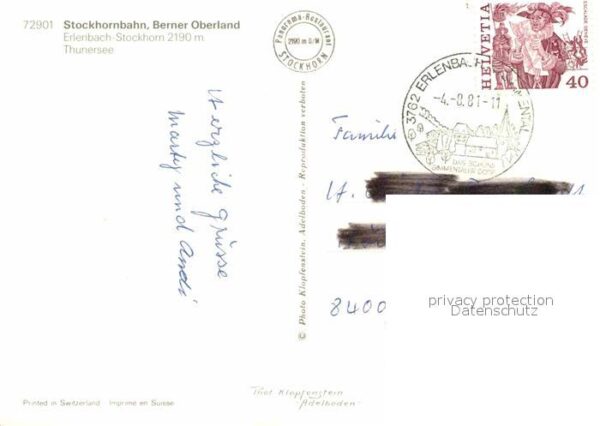 72901 Stockhornbahn, Berner Oberland
Erlenbach-Stockhorn 2190 m
Thunersee
Panorama-Restaurant
2190 m ü/M
STOCKHORN
HELVETIA
40
3762 ERLENBA
MENTAL
-4.-8.81-11
DAS SCHÖNE
SIMMENTALER DORF
Herzliche Grüsse
Marty und Andi
© Photo Klopfenstein, Adelboden - Reproduktion verboten
Familie
8400
privacy protection
Datenschutz
Phot. Klopfenstein
-Adelboden-
Printed in Switzerland Imprimé en Suisse